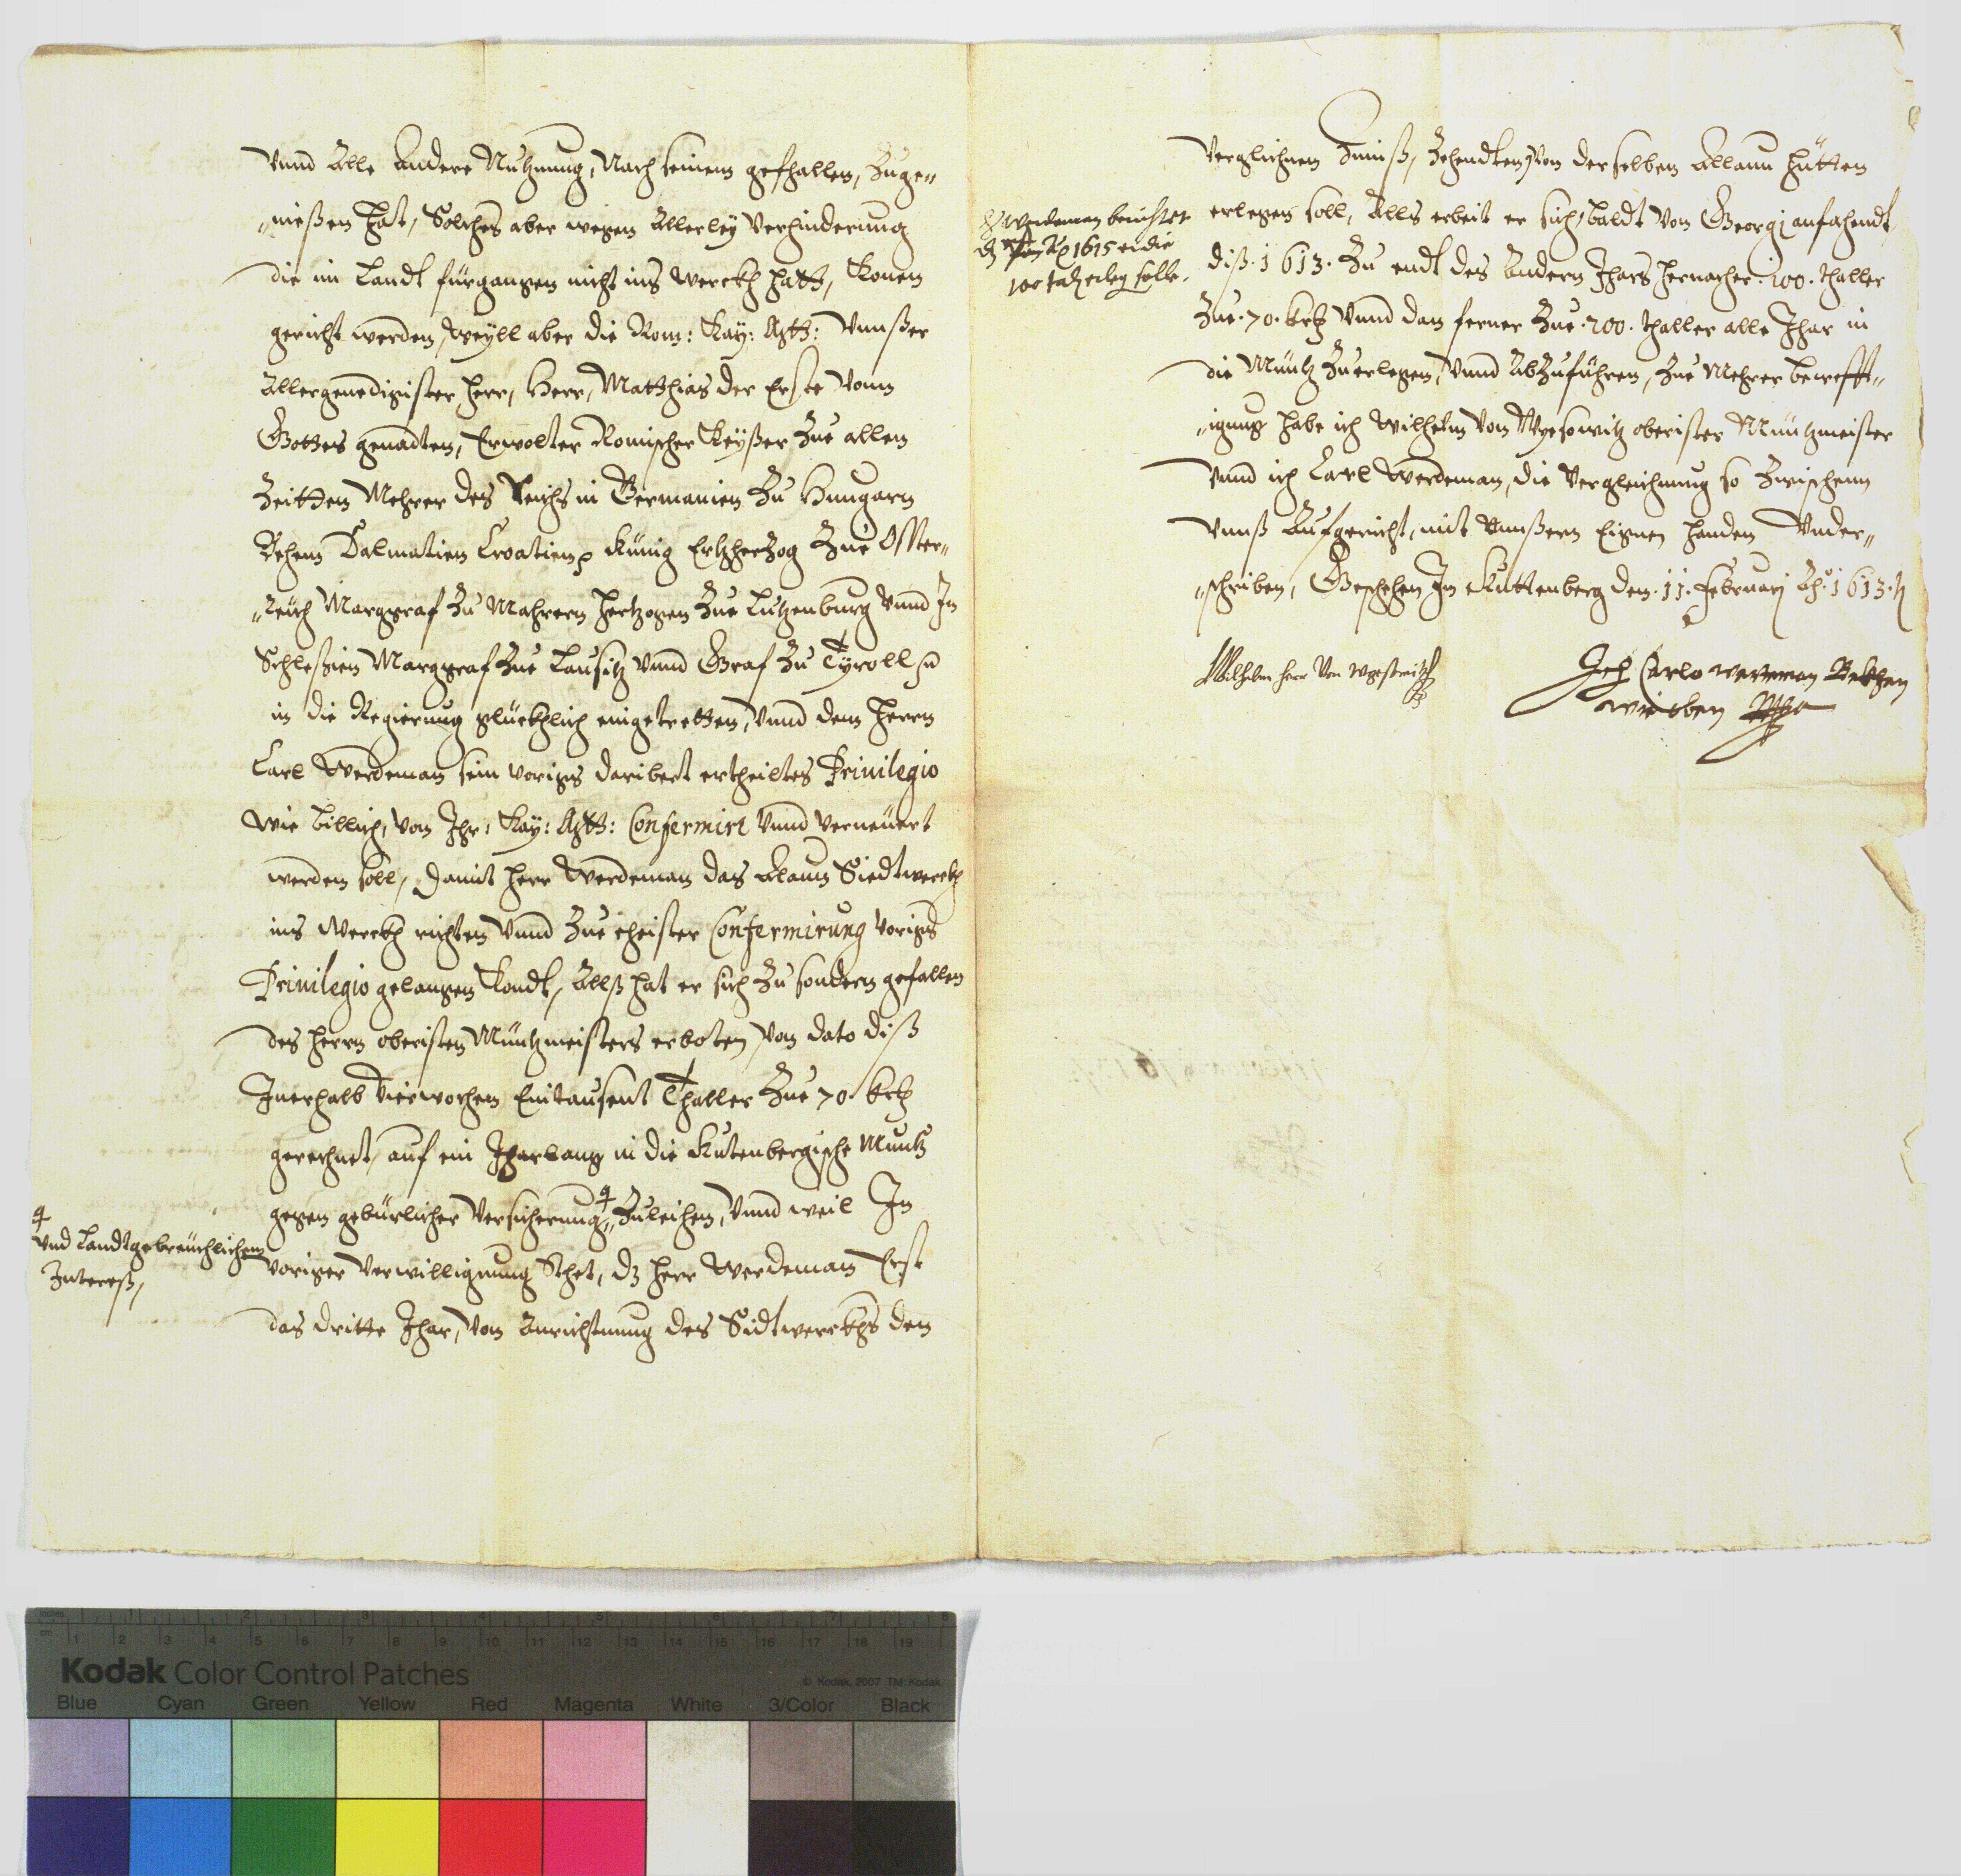 Vnnd Alle Andere Nutzung, Nach seinem gefhallen, Zuge„
„nießen hat, Solches aber wegen Allerley Verhinderung
die im Landt fürgangen nicht ins werckh hatt, Konen
gericht werden, Weyll aber die Rom: Kay: Mtt: Vnnßer
Allergenedigister Herr, Herr, Matthias der Erste Vonn
Gottes genadten, Erwolter Romischer Keyßer Zue allen
Zeitten Mehrer des Reichs in Germanien Zu Hungarn
Behem Dalmatien Croatien König Ertzherzog Zue Osster„
„reich Marggraf Zu Mahrern Hertzogen Zue Lutzenburg Vnnd In
Schleßien Marggraf Zue Lausitz Vnnd Graf Zu Tyroll
in die Regierung glückhlich eingetretten, Vnnd dem Herrn
Carl Werdeman sein Voriges daribert ertheiltes Priuilegio
wie billich, von Ihr: Kay: Mtt: Confermirt Vnnd Verneüert
werden soll, Damit Herr Werdeman das Alaun Siedtwerckh
ins Werckh richten Vnnd Zue eheister Confermirung Voriges
Priuilegio gelangen Kondt, Allß hat er sich Zu sondern gefallen
des Herrn obristen Müntzmeisters erboten, Von dato diß
Inerhalb Vier wochen Eintausent Thaller Zue 70 krtz
gerechnet, auf ein Jharlang in die Kutenbergische Müntz
gegen gebürlicher Versicherung, Zuleihen, Vnnd weil In
Vnd Landtgebreüchlichem
Interesß,
Voriger Verwilligung Stet, dz Herr Werdeman Erst
das dritte Jhar, Von Anrichtung des Sidtwerckhs den
Verglichnen Zinnß, Zehendten, Von derselben Allaun Hütten
erlegen soll, Alls erbeit er sich, baldt Von Georgi anfahendt
Werdeman berichtet
1615 er die
100 tal erleg solle.
diß. 1613. Zu endt des Andern Jhars hernacher. 100. thaller
Zue. 70. krtz Vnnd dan ferner Zue. 200. thaller alle Jhar in
die Müntz Zuerlegen, Vnnd AbZuführen, Zue Mehrer becrefft„
„igung habe ich Wilhelm Von Wrzesowitz oberister Müntzmeister
Vnnd ich Carl Werdeman, die Vergleichnung so Zwischenn
Vnnß Aufgericht, mit Vnnßern Eignen handen Vnder„
„schriben, Geschehen In Kuttenberg den. 11. Februarj Ao. 1613.
Wilhelm herr Von
Ich Carlo werteman Bekhen
wie oben